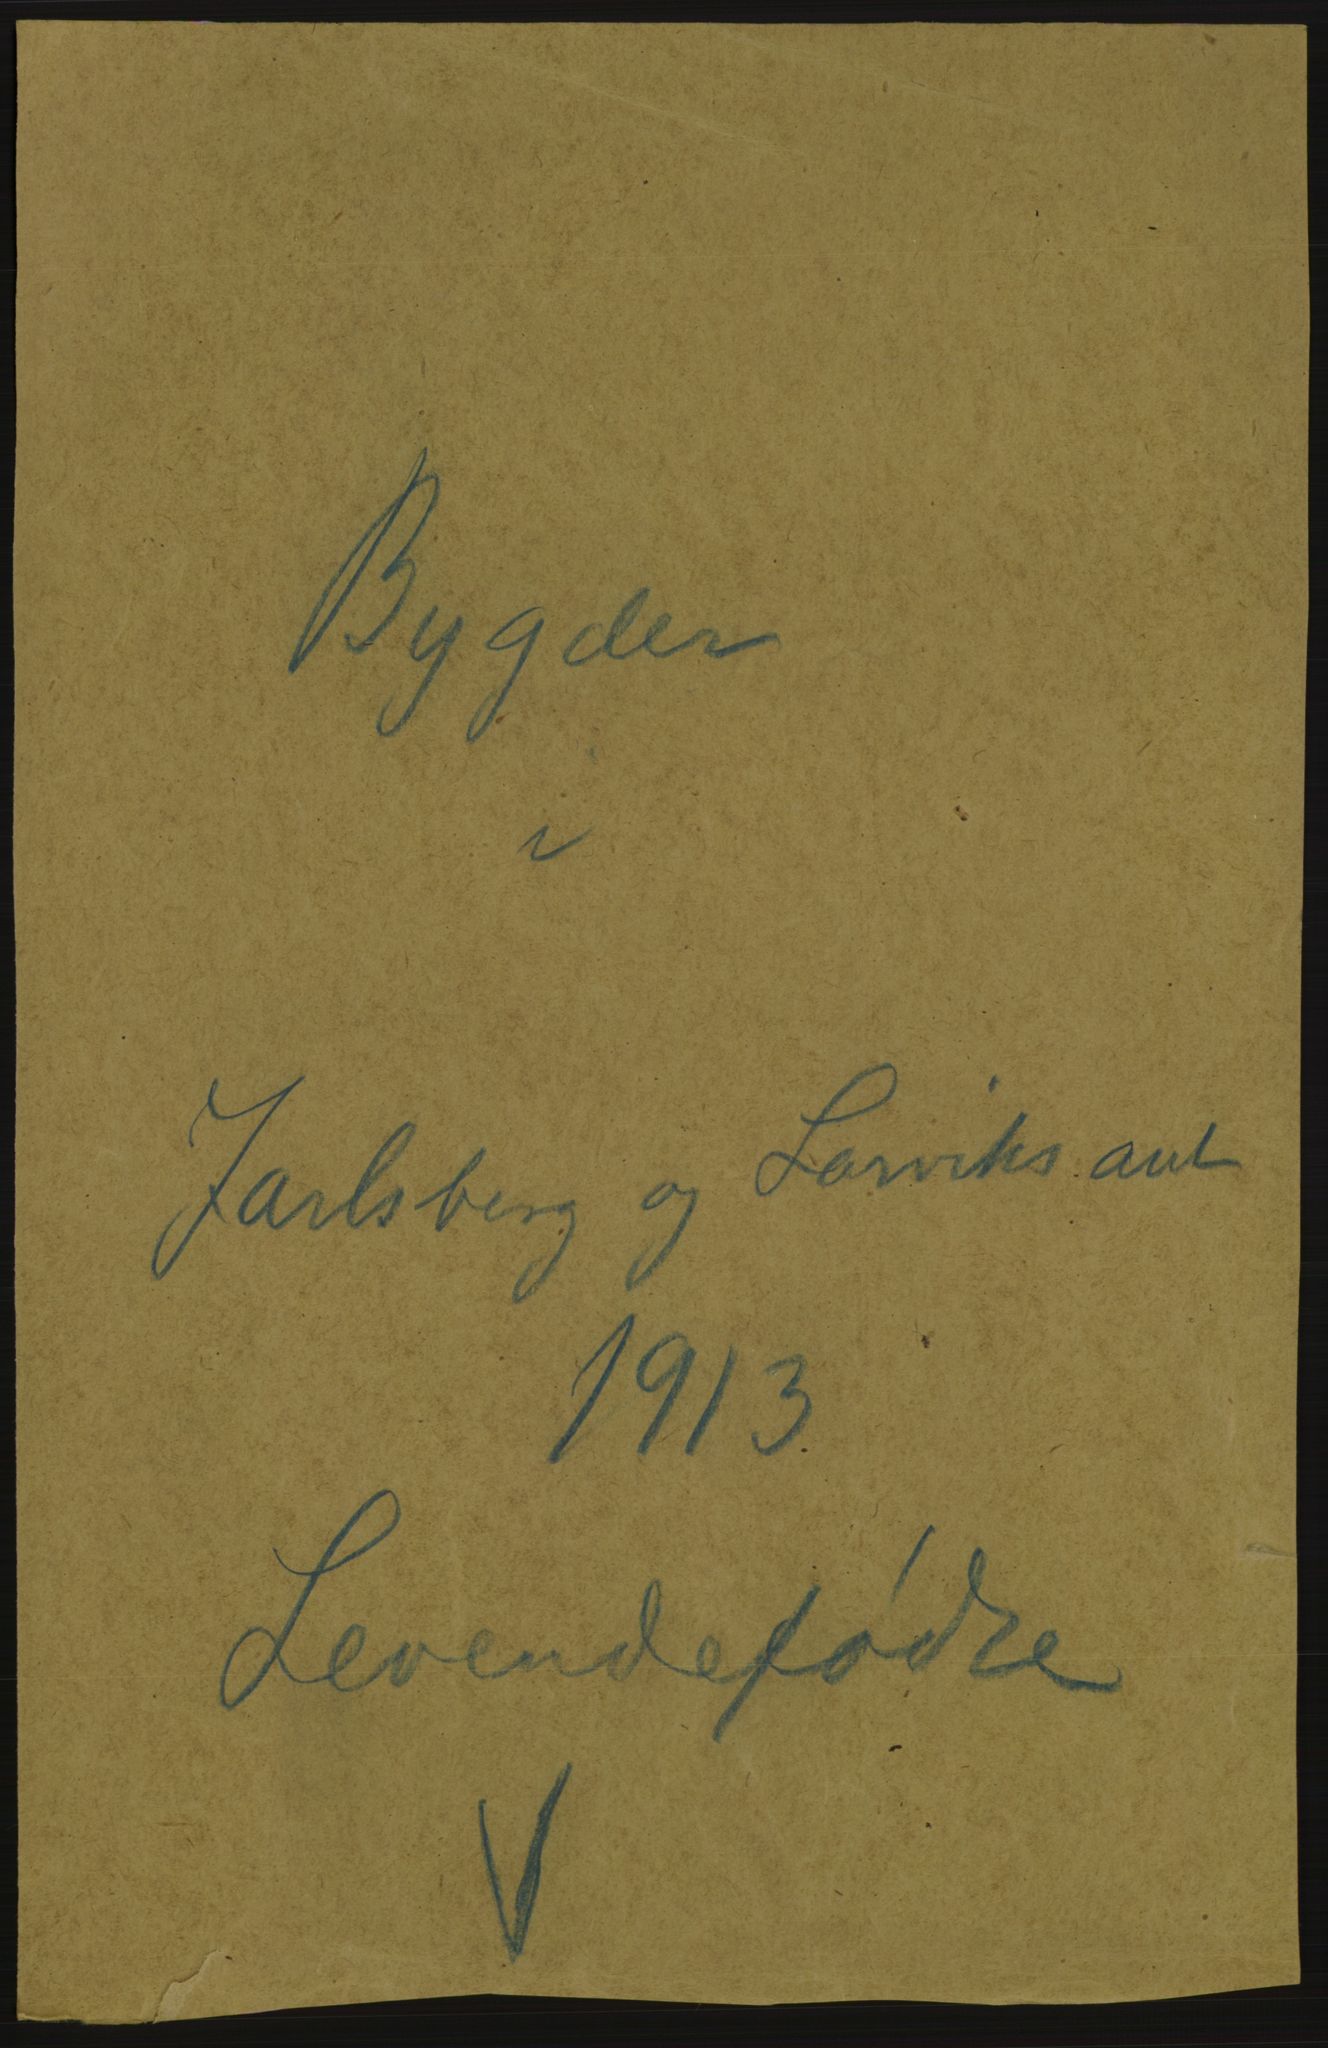 Bygder
i
Jarlsberg og Larviks amt
1913
Levendefødte
V